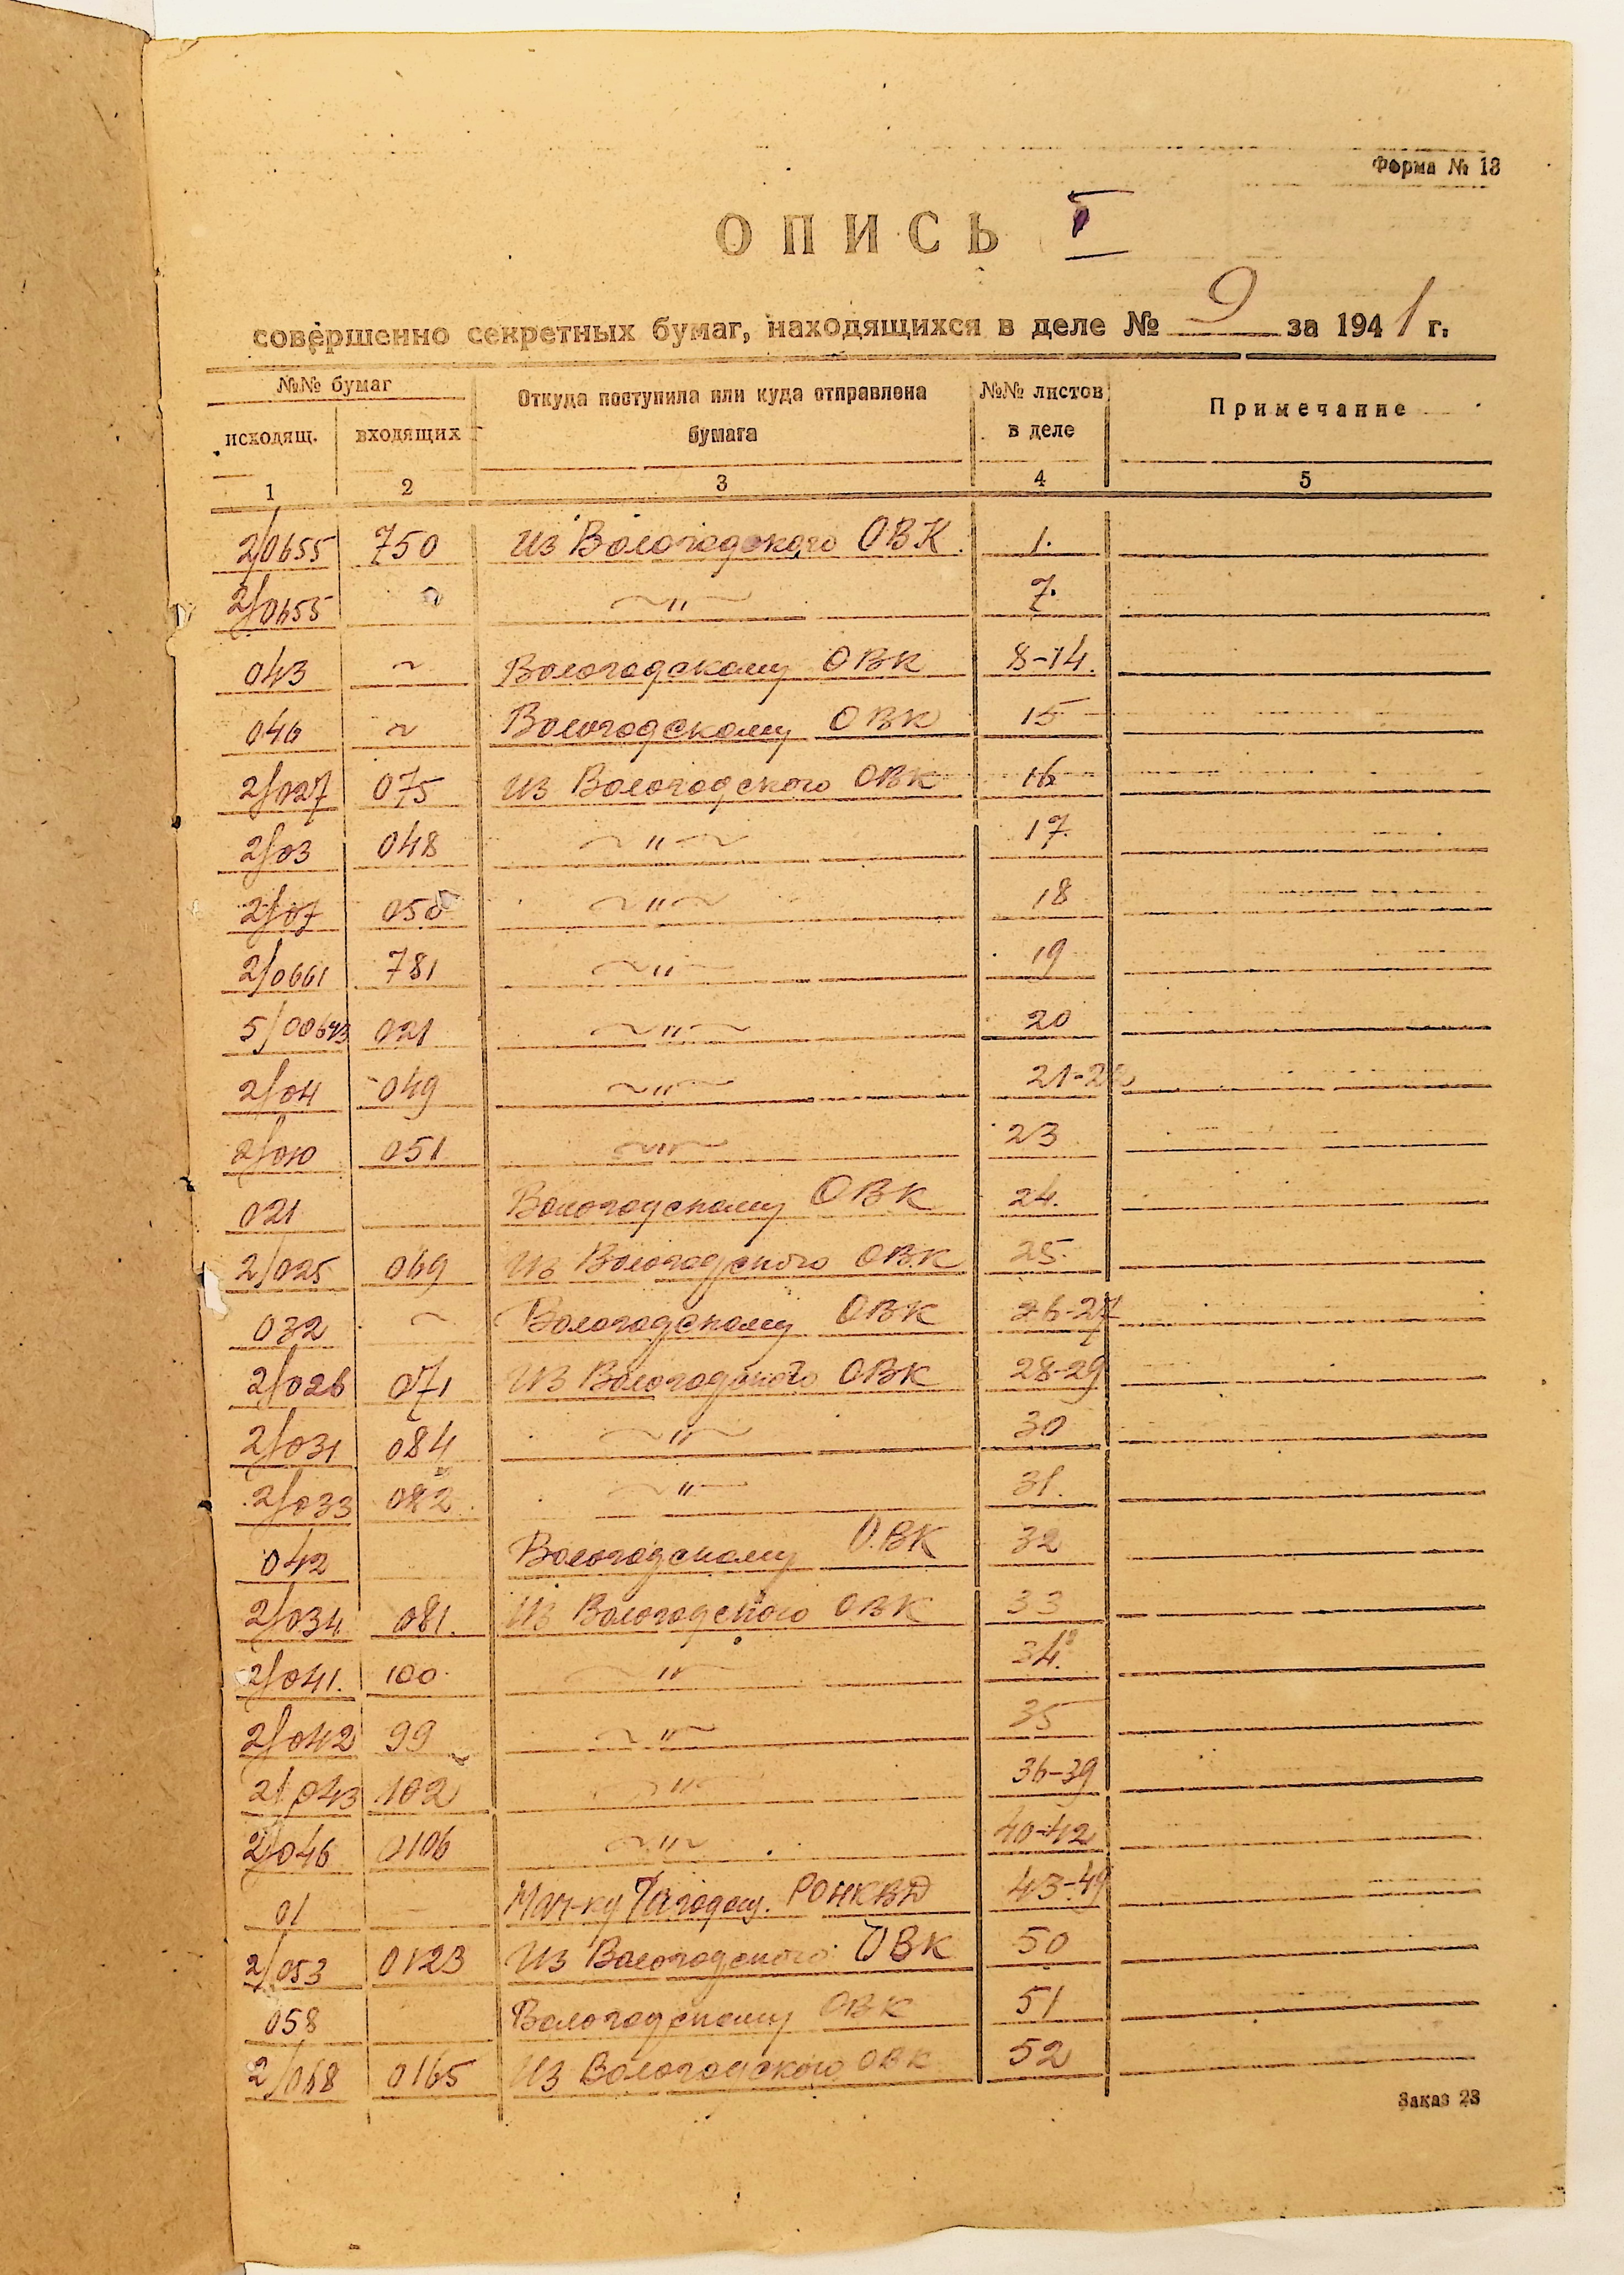 Форма № 13
ОПИСЬ I
совершенно секретных бумаг, находящихся в деле № 9 за 1941 г.
№№ бумаг Откуда поступила или куда отправлена бумага №№ листов в деле Примечание
исходящ. входящих
1 2 3 4 5
2/0655 750 из Вологодского ОВК. 1.
2/0655 ~"~ 7.
043 ~ Вологодскому ОВК 8-14.
046 ~ Вологодскому ОВК 15
2/027 075 из Вологодского ОВК 16
2/03 048 ~"~ 17.
2/07 050 ~"~ 18
2/0661 781 ~"~ 19
5/00643 021 ~"~ 20
2/04 049 ~"~ 21-22
2/010 051 ~"~ 23
021 Вологодскому ОВК 24.
2/025 069 Из Вологодского ОВК 25.
032 ~ Вологодскому ОВК 26-27
2/026 071 Из Вологодского ОВК 28-29
2/031 084 ~"~ 30
2/033 082 ~"~ 31.
042 Вологодскому ОВК 32
2/034 081. Из Вологодского ОВК 33
2/041. 100 ~"~ 34.
2/042 99 ~"~ 35
2/043 102 ~"~ 36-39
2/046 0106 ~"~ 40-42
01 – РОНКВД 43-49
2/053 0123 Из Вологодского ОВК 50
058 Вологодскому ОВК 51
2/068 0165 Из Вологодского ОВК 52
Заказ 23